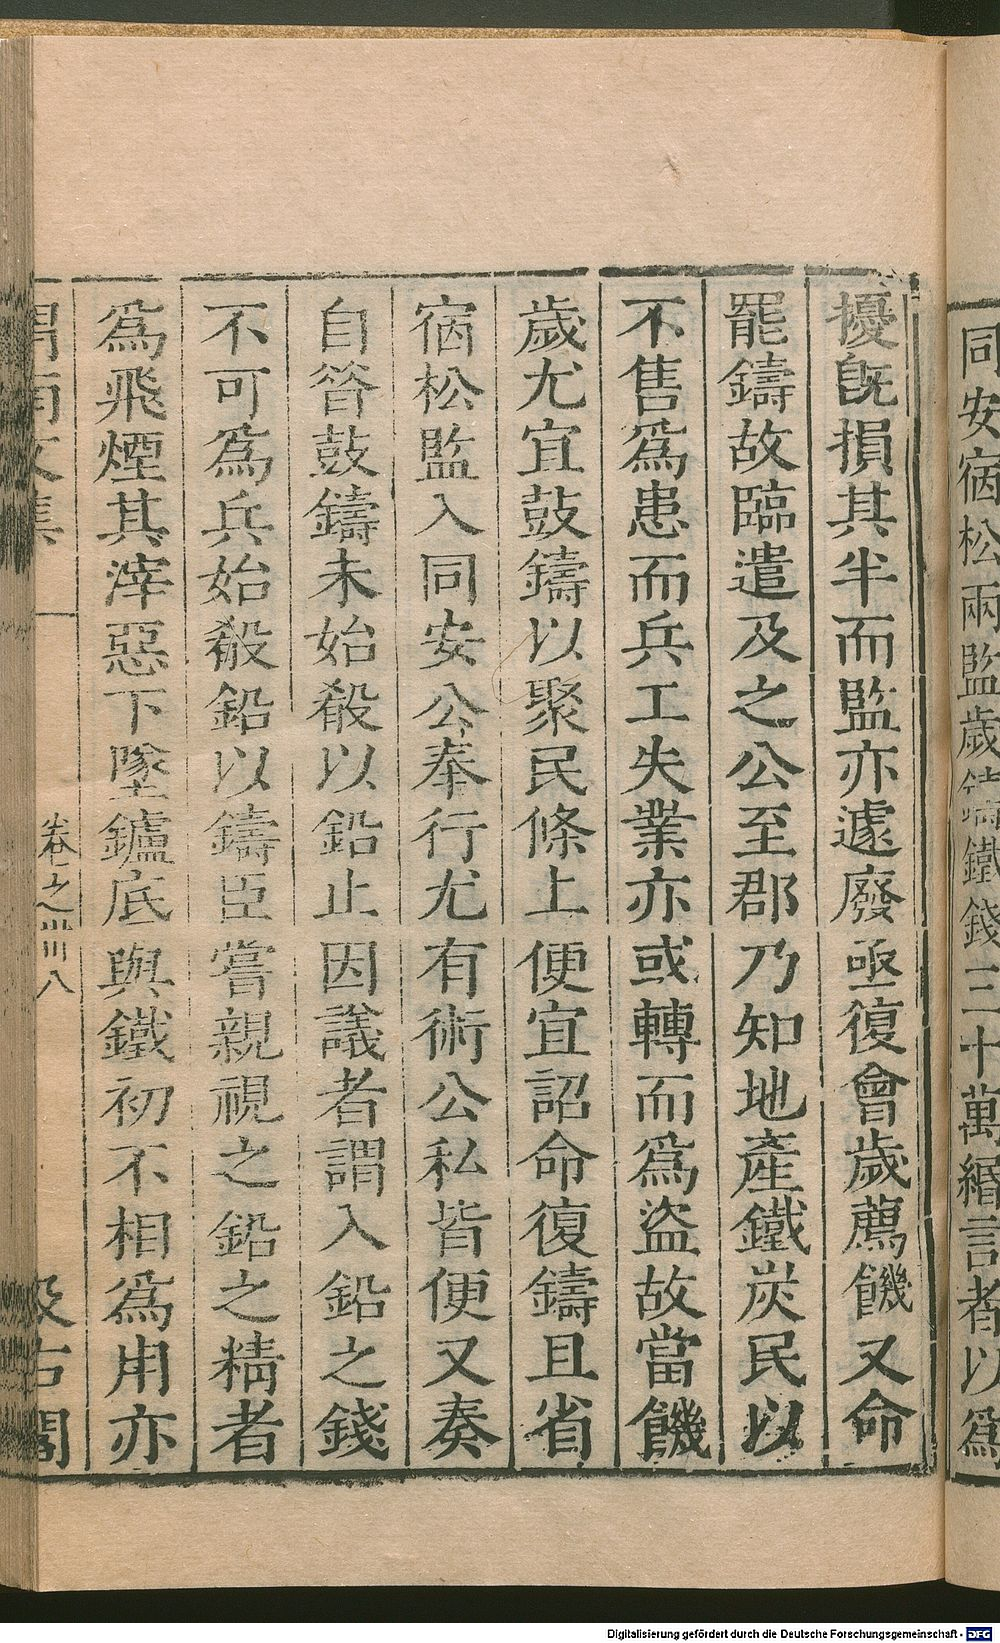 同安宿松兩監歲鑄鐵錢三十萬緡言者以爲
擾旣損其半而監亦遽廢亟復會歲薦饑又命
罷鑄故臨遣及之公至郡乃知地產鐵炭民以
不售爲患而兵工失業亦或轉而爲盜故當饑
歲尤宜鼓鑄以聚民條上便宜詔命復鑄且省
宿松監入同安公奉行尤有術公私皆便又奏
自昝鼓鑄未始殽以鉛止因議者謂入鉛之錢
不可爲兵始殽鉛以鑄臣嘗親視之鉛之精者
爲飛煙其滓惡下墜鑪底與鐵初不相爲用亦
渭南文集
卷之卅八
汲古閣
Digitalisierung gefördert durch die Deutsche Forschungsgemeinschaft - DFG